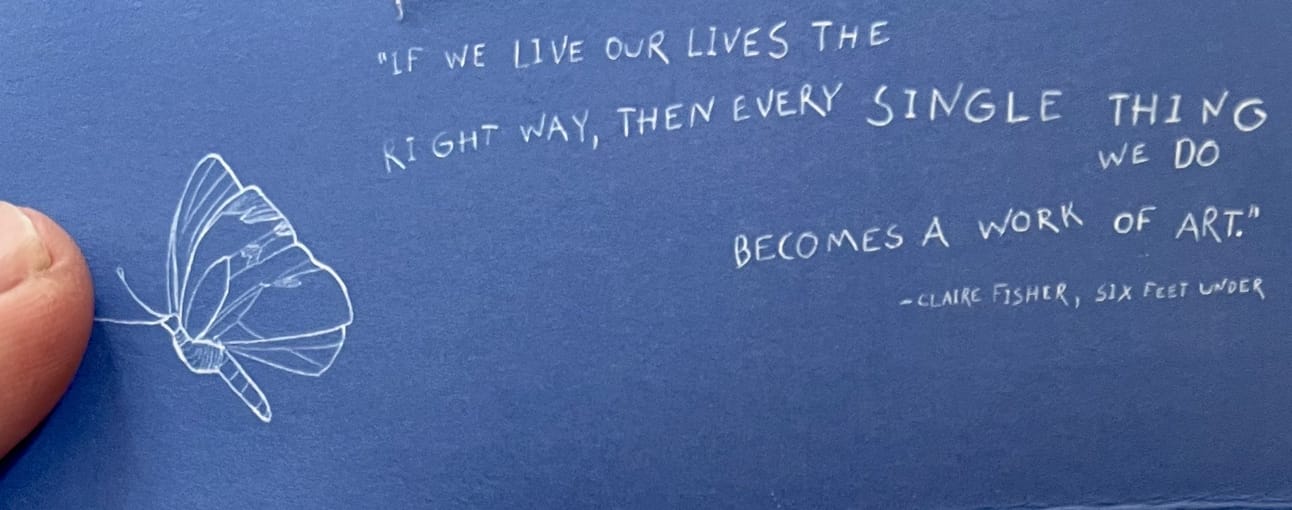 "IF WE LIVE OUR LIVES THE
RIGHT WAY, THEN EVERY SINGLE THING
WE DO
BECOMES A WORK OF ART."
-CLAIRE FISHER, SIX FEET UNDER